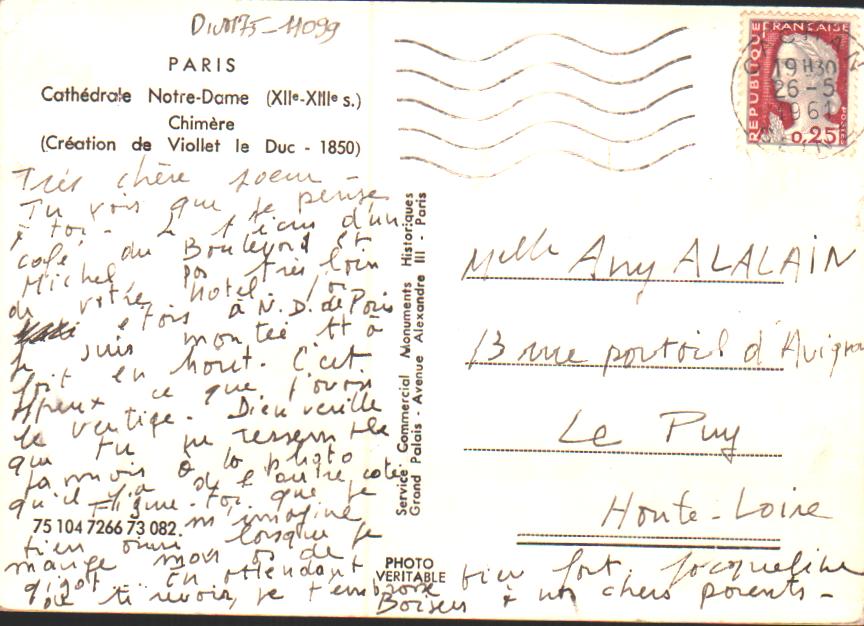 Div0175-11099
PARIS
Cathédrale Notre-Dame (XIIe-XIIIe s.)
Chimère
(Création de Viollet le Duc - 1850)
Très chère soeur -
Tu vois que je pense
à toi - Je t'écris d'un
café du Boulevard St
Michel, pas très loin
de votre hotel.
étois à N.D. de Paris
Je suis montée tt à
fait en haut. C'est
affreux ce que j'avais
le vertige. Dieu veuille
que tu ne ressembles
jamais à la photo
qu'il y a de l'autre côté
Figure-toi que je
75 104 7266 73 082.
m'imagine
lorsque je
mange mon os de
gigot... En attendant
de te revoir, je t'embrasse bien fort. Jacqueline
Baisers à nos chers parents -
Service Commercial Monuments Historiques
Grand Palais - Avenue Alexandre III - Paris
PHOTO
VERITABLE
REPUBLIQUE FRANÇAISE
POSTES
0,25
19H30
26-5
1961
Melle Any ALALAIN
13 rue portail d'Avigno
Le Puy
Haute-Loire